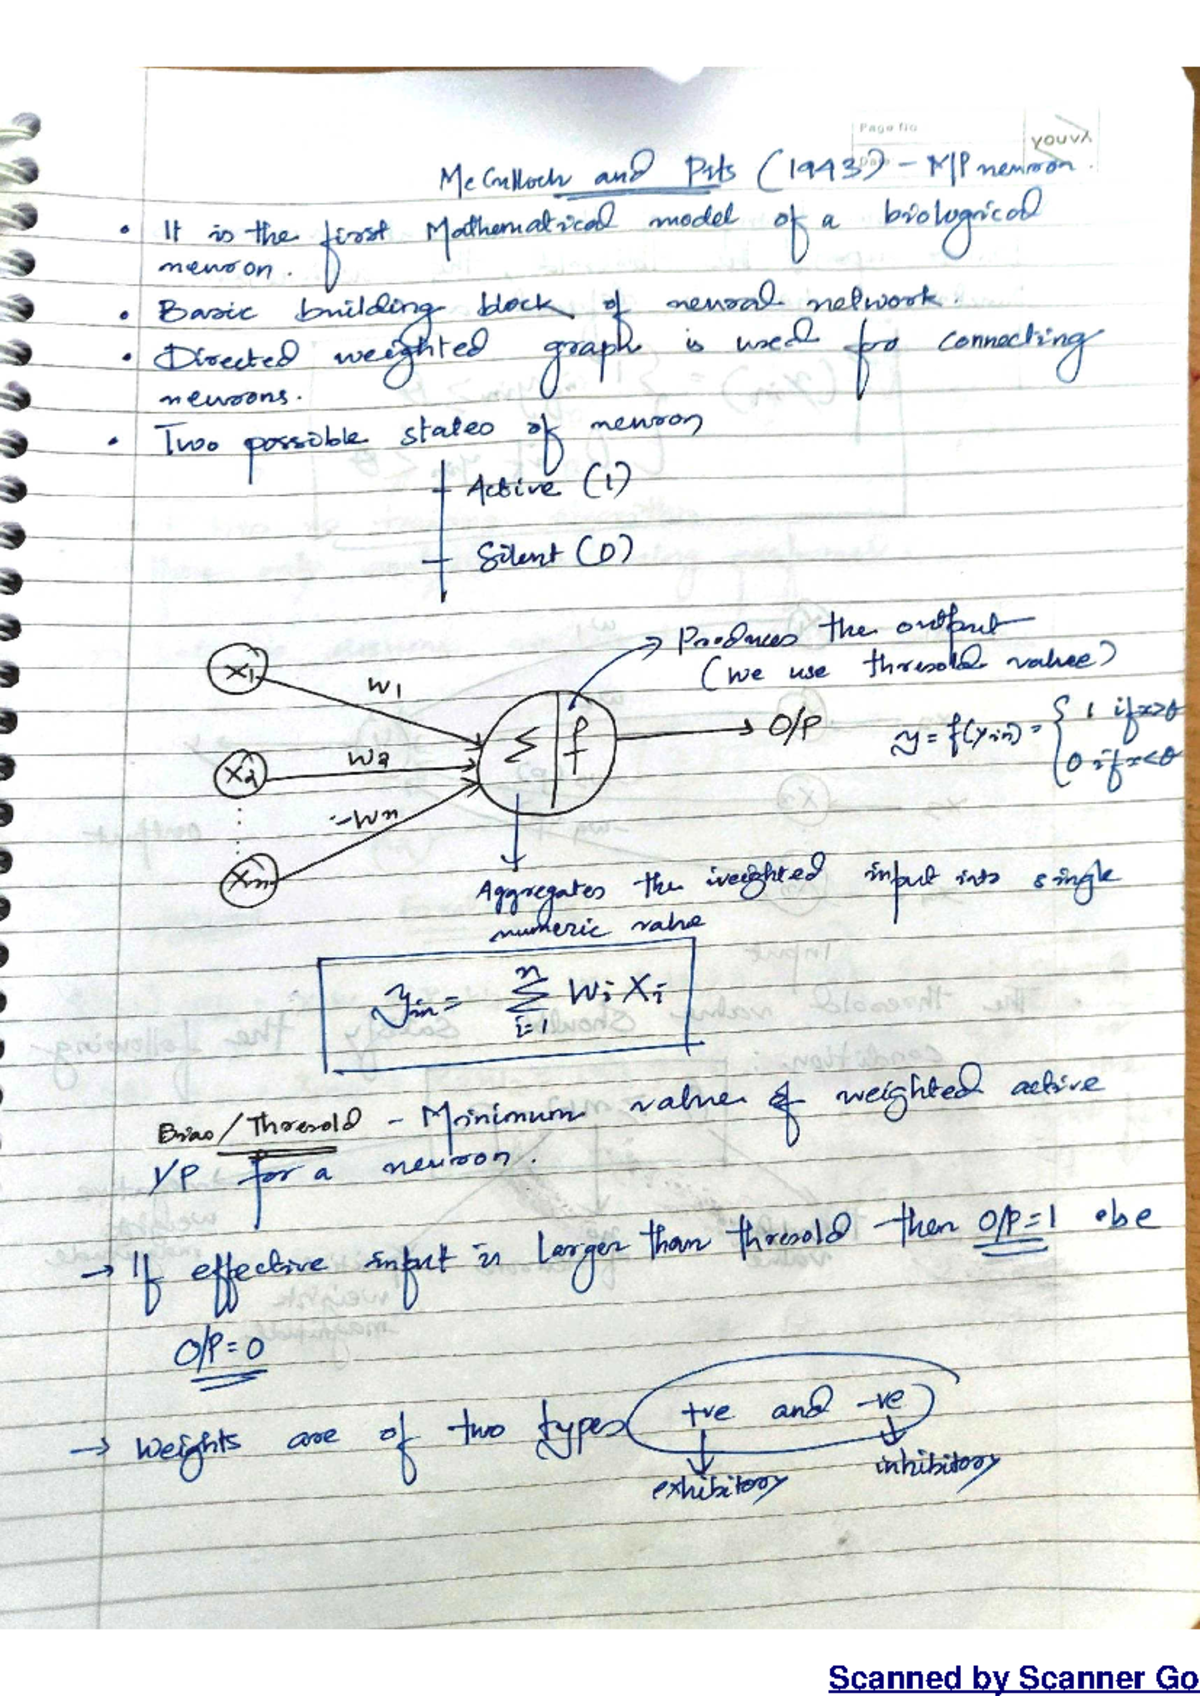 Page No
youva
McCulloch and Pits (1943) - M/P neuron.
• It is the first Mathematical model of a biological
neuron.
• Basic building block of neural network.
• Directed weighted graph is used for connecting
neurons.
• Two possible states of neuron
Active (1)
Silent (0)
Produces the output
(we use thresold value)
X1
W1
Σ f
→ O/P
y = f(yin) = { 1 if x>θ
0 if x<θ
X2
W2
-Wn
Xn
Aggregates the weighted input into single
numeric value
yin = Σ i=1 n Wi Xi
Bias/Thresold - Minimum value of weighted active
I/P for a neuron.
→ If effective input is larger than thresold then O/P=1 else
O/P=0
→ Weights are of two types +ve and -ve
exhibitory inhibitory
Scanned by Scanner Go